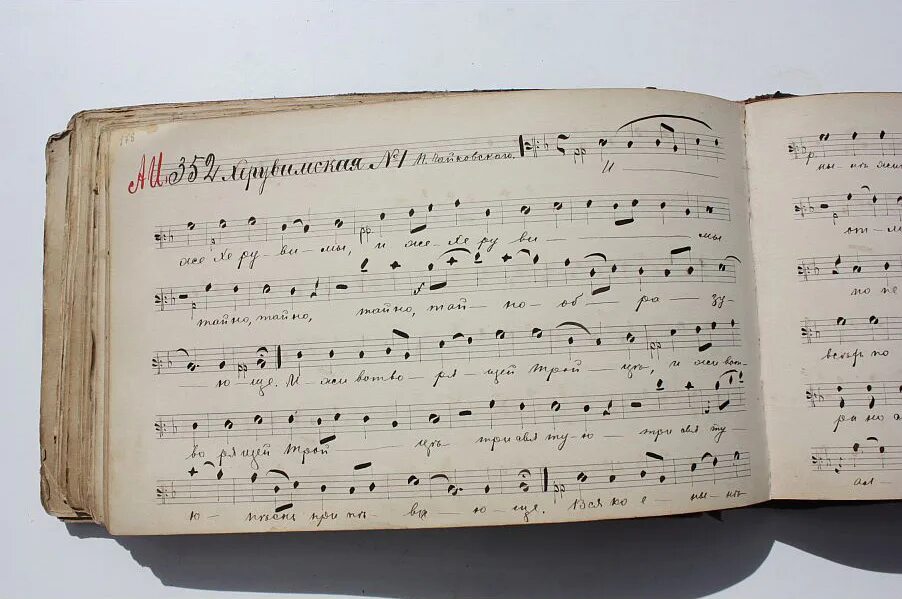 АИ 352 Херувимская №1 П. Чайковскаго.
pp
И
же Хе ру- ви- мы, и же- Хе ру ви- мы
pp
тайно, тайно, тайно, тай- но- об- ра- зу-
ю- ще. И жи вотво- ря- щей Трой- цѣ, и живот-
pp
во рящей Трой- цѣ- три свя ту ю- три свя ту-
ю- пѣснь при пѣ- ва- ю- ще. Вся ко е- ны- нѣ
pp
ны-нѣ жи
от-л
по пе